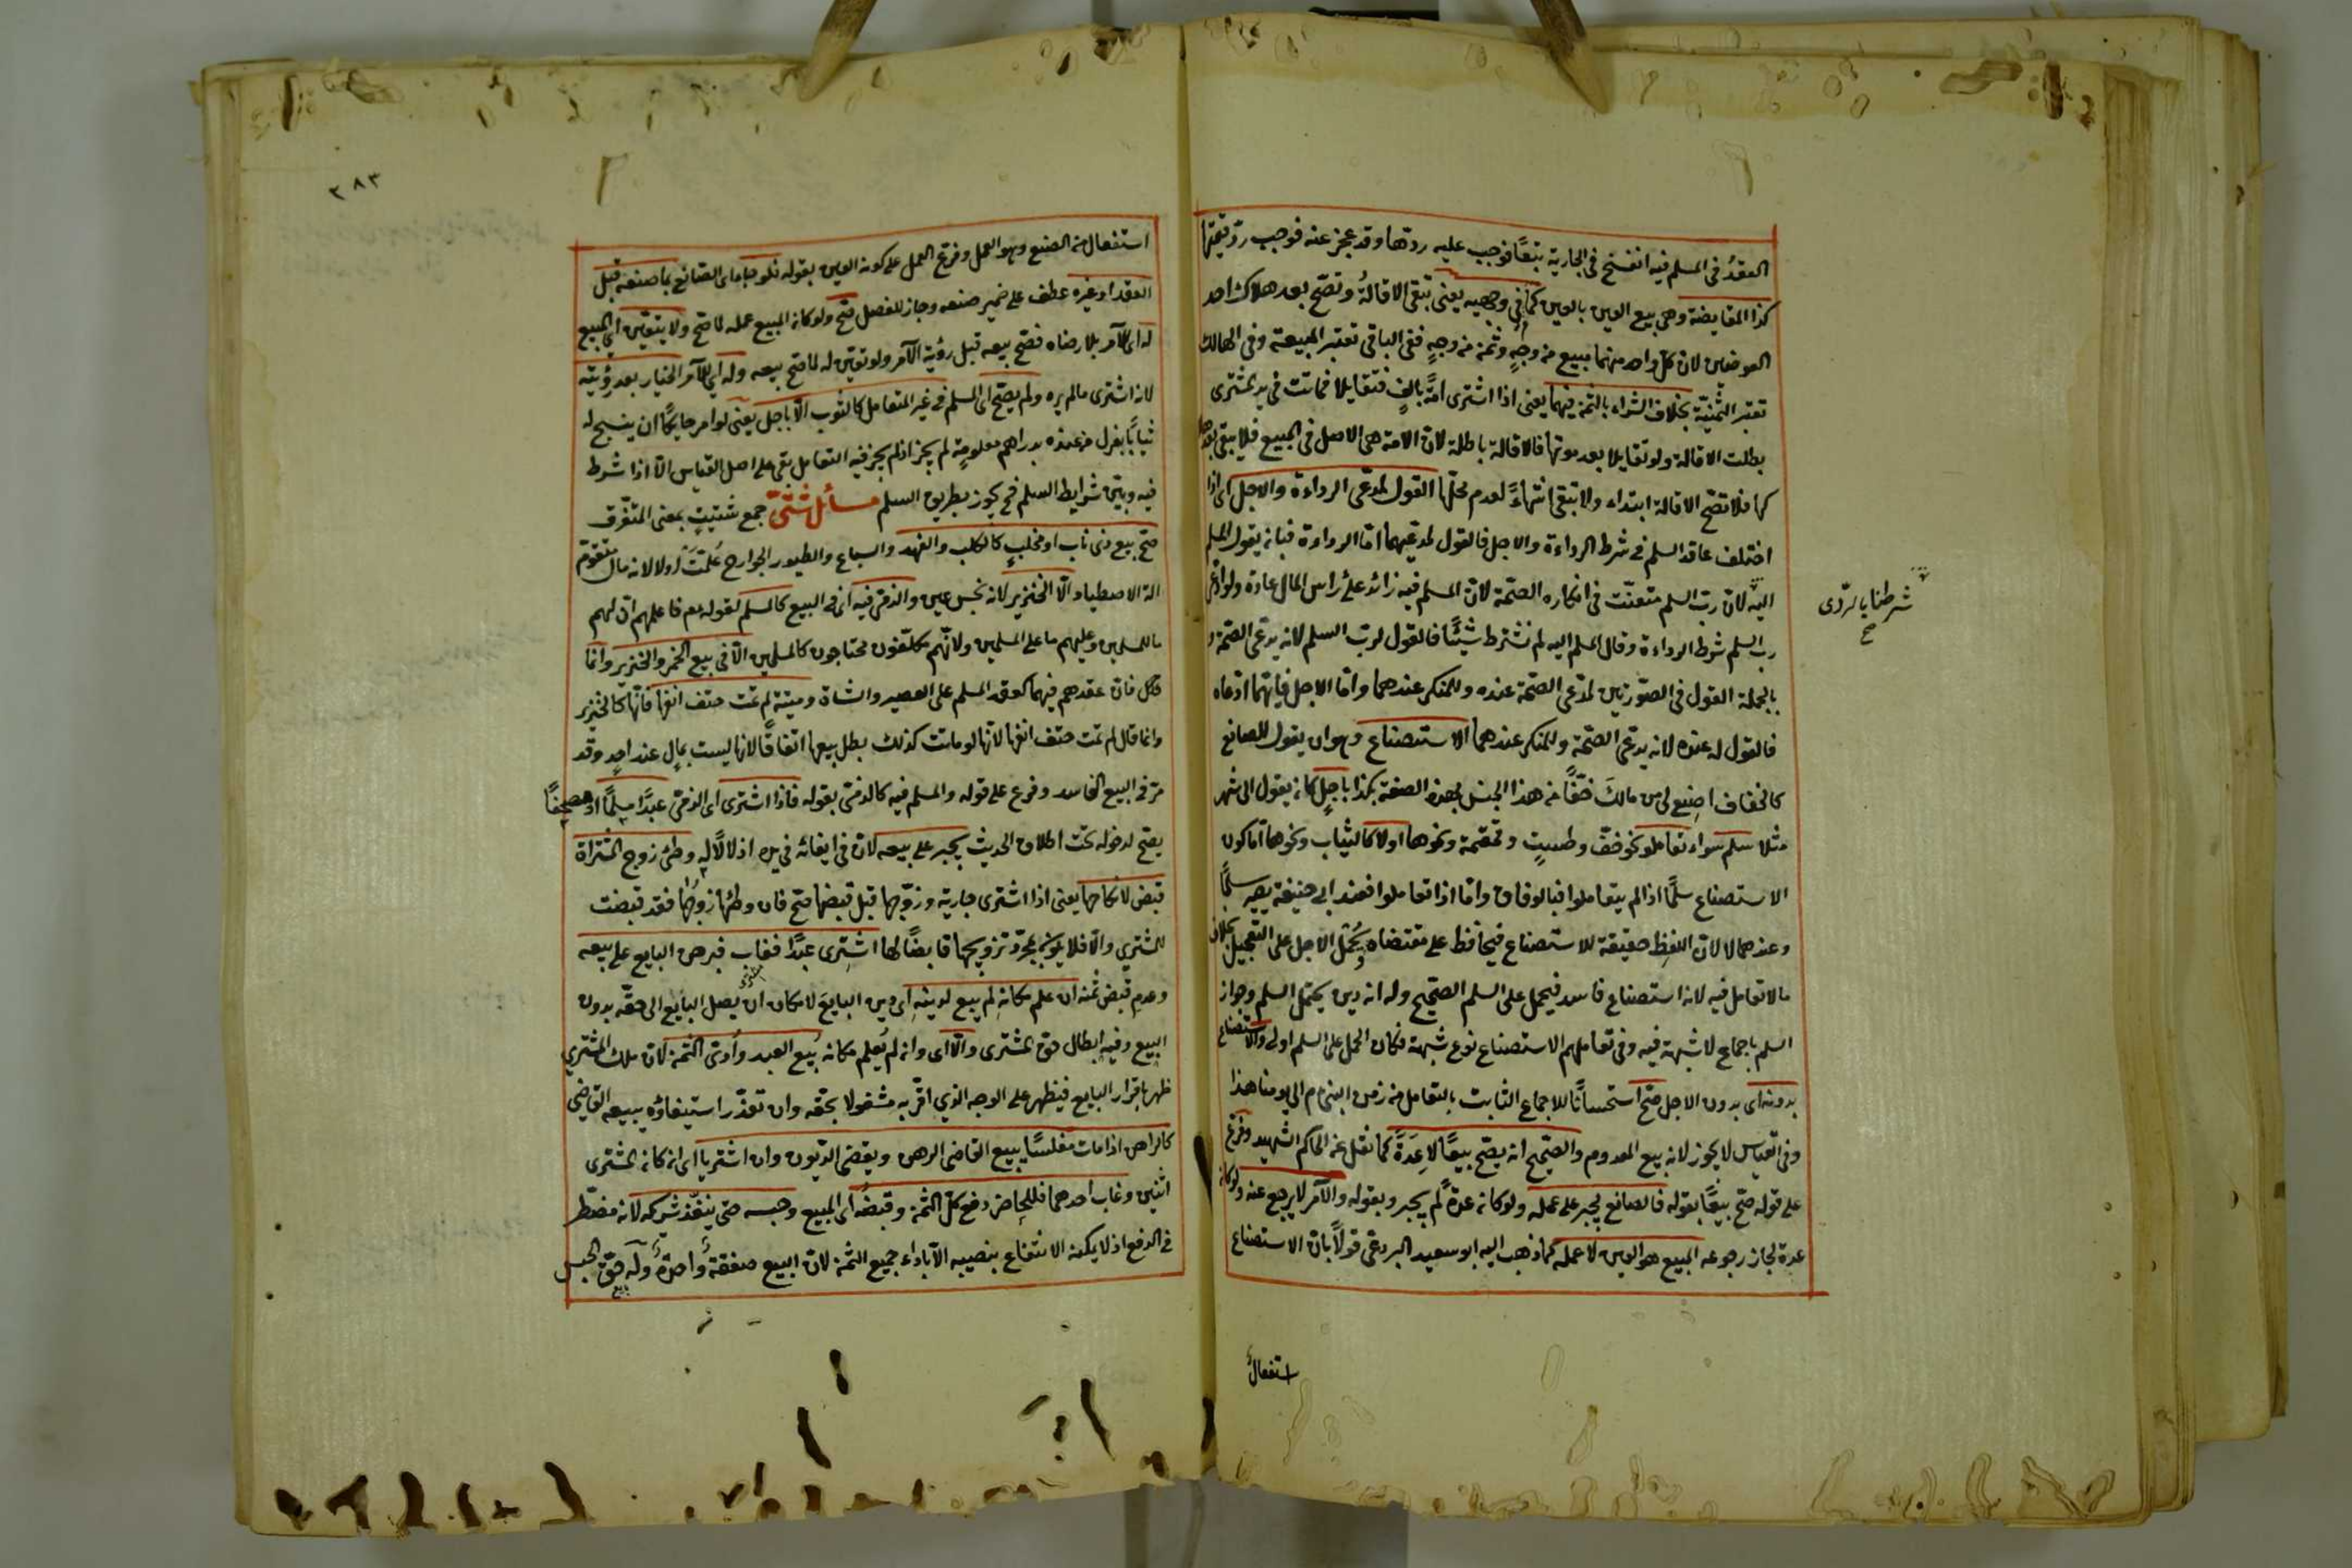 العقدُ فى المسلم فيه انفسخ فى الجارية تبعًا فوجب عليه ردّها وقد عجز عنه فوجب ردّ قيمتها
كذا المقايضة وهى بيع العين بالعين كما فى وجهيه يعنى تبقى الاقالةُ وتصحّ بعد هلاك احد
العوضين لان كل واحد منهما مبيع من وجهٍ وثمن من وجهٍ ففى الباقى تعتبر المبيعة وفى الهالك
تعتبر الثمنيّة بخلاف الشراء بالثمن فيهما يعنى اذا اشترى امةً بالفٍ فتقايلا فماتت فى يد المشترى
بطلت الاقالة ولو تقايلا بعد موتها فالاقالة باطلة لان الامة هى الاصل فى المبيع فلا يبقى بعد
كها فلا تصحّ الاقالة ابتداء ولا تبقى انتهاءً لعدم محلّها القول لمدّعى الرداءة والاجل اى اذا
اختلف عاقد السلم فى شرط الرداءة والاجل فالقول لمدعيهما امّا الرداءة فبانه يقول المسلم
اليه لان ربّ السلم متعنّت فى انكاره الصحّة لان المسلم فيه زائد على راس المال عادة ولو ادّعى
رب السلم شرط الرداءة وقال المسلم اليه لم نشترط شيئًا فالقول لرب السلم لانه يدّعى الصحّة و
بالجملة القول فى الصّورتين لمدّعى الصحّة عنده وللمنكر عندهما وامّا الاجل فايّهما ادّعاه
فالقول له عنده لانه يدّعى الصحّة وللمنكر عندهما الاستصناع وهو ان يقول للصانع
كالخفاف اصنع لى من مالك خفًّا من هذا الجنس بهذه الصفة بكذا باجلٍ كانه يقول الى شهر
مثلا سلم سواء تعاملوه كخفّ وطستٍ وقمقمة ونحوها اولا كالثياب ونحوها امّا كون
الاستصناع سلمًا اذا لم يتعاملوا فبالوفاق وامّا اذا تعاملوا فعند ابى حنيفة يصير سلمًا
وعندهما لا لان اللفظ حقيقة للاستصناع فيحافظ على مقتضاه ويُحمل الاجل على التعجيل بخلاف
مالا تعامل فيه لانه استصناع فاسد فيحمل على السلم الصحيح وله انه دين يحتمل السلم وجواز
السلم باجماع لا شبهة فيه وفى تعاملهم الاستصناع نوع شبهة فكان الحمل على السلم اولى والاستصناع
بدونه اى بدون الاجل صحّ استحسانًا للاجماع الثابت بالتعامل من زمن النبى م الى يومنا هذا
وفى القياس لا يجوز لانه بيع المعدوم والصّحيح انه يصحّ بيعًا لا عِدَةً كما نقل عن الحاكم الشهيد وفرع
على قوله صحّ بيعًا بقوله فالصانع يجبر على عمله ولو كانه عدةً لم يجبر وبقوله والآمر لا يرجع عنه ولو كانه
عدة لجاز رجوعه المبيع هو العين لا عمله كما ذهب اليه ابو سعيد البردعى قولًا بان الاستصناع
شرطنا بالردّى
صح
استفعالٌ
٢٨٣
استفعال من الصنع وهو العمل وفرّع العمل على كونه العين بقوله فلو جاء اى الصّانع بما صنعه قبل
العقد او غيره عطف على ضمير صنعه وجاز للفصل صحّ ولو كانه المبيع عمله لما صحّ ولا يتعيّن اى المبيع
له اى للآمر بلا رضاه فصحّ بيعه قبل رؤية الآمر ولو تعيّن له لما صحّ بيعه وله اى للآمر الخيار بعد رؤيته
لانه اشترى مالم يره ولم يصحّ اى السلم فى غير المتعامل كالثوب الّا باجل يعنى لو امر حايكًا ان ينسج له
ثيابًا بغزل من عنده بدراهم معلومةٍ لم يجز اذ لم يجز فيه التعامل بقى على اصل القياس الّا اذا شرط
فيه وبيّن شرايط السلم فح يجوز بطريق السلم مسائل شتّى جمع شتيتٍ بمعنى المتفرّق
صحّ بيع ذى ناب او مخلبٍ كالكلب والفهد والسباع والطيور الجوارح عُلّمتْ اولا لانه مال متقوّم
الة الاصطياد الّا الخنزير لانه نجس عين والذمّى فيه اى فى البيع كالمسلم لقوله عم فاعلمهم انّ لهم
ما للمسلمين وعليهم ما على المسلمين ولانّهم مكلّفون محتاجون كالمسلمين الّا فى بيع الخمر والخنزير وانما
فان عقدهم فيهما كعقد المسلم على العصير والشاة وميتة لم تمت حتف انفها فانّها كالخنزير
وانما قال لم تمت حتف انفها لانها لو ماتت كذلك بطل بيعها اتفاقًا لانها ليست بمالٍ عند احدٍ وقد
مرّ فى البيع الفاسد وفرع على قوله والمسلم فيه كالذمّى بقوله فاذا اشترى اى الذمّى عبدًا مسلمًا او مصحفًا
يصحّ لدخوله تحت اطلاق الحديث يجبر على بيعه لان فى ابقائه فى يده اذلالًا له وطئ زوج المشتراة
قبض لا نكاحها يعنى اذا اشترى جارية وزوّجها قبل قبضها صحّ فان وطئها زوجُها فقد قبضت
للمشترى والّا فلا يكون بمجرّد تزويجها قابضًا لها اشترى عبدًا فغاب فبرهن البايع على بيعه
وعدم قبض ثمنه ان علم مكانه لم يبع لدينه اى دين البايع لامكان ان يصل البايع الى حقّه بدون
البيع وفيه ابطال حق المشترى والّا اى وانه لم يُعلم مكانه بُيع العبد وأُدى الثمن لان ملك المشترى
ظهر باقرار البايع فيظهر على الوجه الذى اقرّ به مشغولا بحقه وان تعذّر استيفاؤه يبيعه القاضى
كالراهن اذا مات مفلسًا يبيع القاضى الرهن ويقضى الدّيون وان اشتريا اى ان كانه المشترى
اثنين وغاب احدهما فللحاضر دفع كل الثمن وقبضُه اى المبيع وحبسه حتى ينقد شريكه لانه مضطّر
فى الدفع اذ لا يمكنه الانتفاع بنصيبه الّا باداء جميع الثمن لان البيع صفقةٌ واحدةٌ وله حقّ الحبس